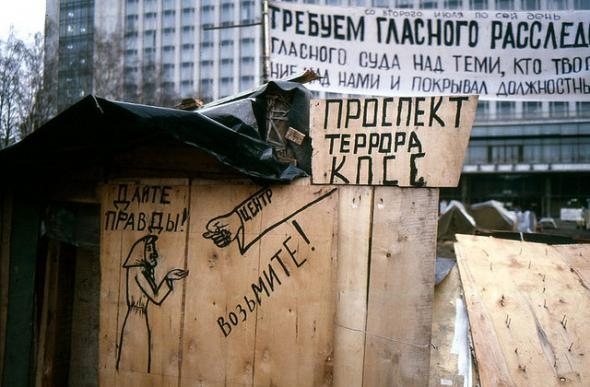 СО ВТОРОГО ИЮЛЯ ПО СЕЙ ДЕНЬ
ТРЕБУЕМ ГЛАСНОГО РАССЛЕД
ГЛАСНОГО СУДА НАД ТЕМИ, КТО ТВО
НИЕ НАД НАМИ И ПОКРЫВАЛ ДОЛЖНОСТНЫ
ПРОСПЕКТ
ТЕРРОРА
КПСС
ДАЙТЕ
ПРАВДЫ!
ЦЕНТР
ВОЗЬМИТЕ!